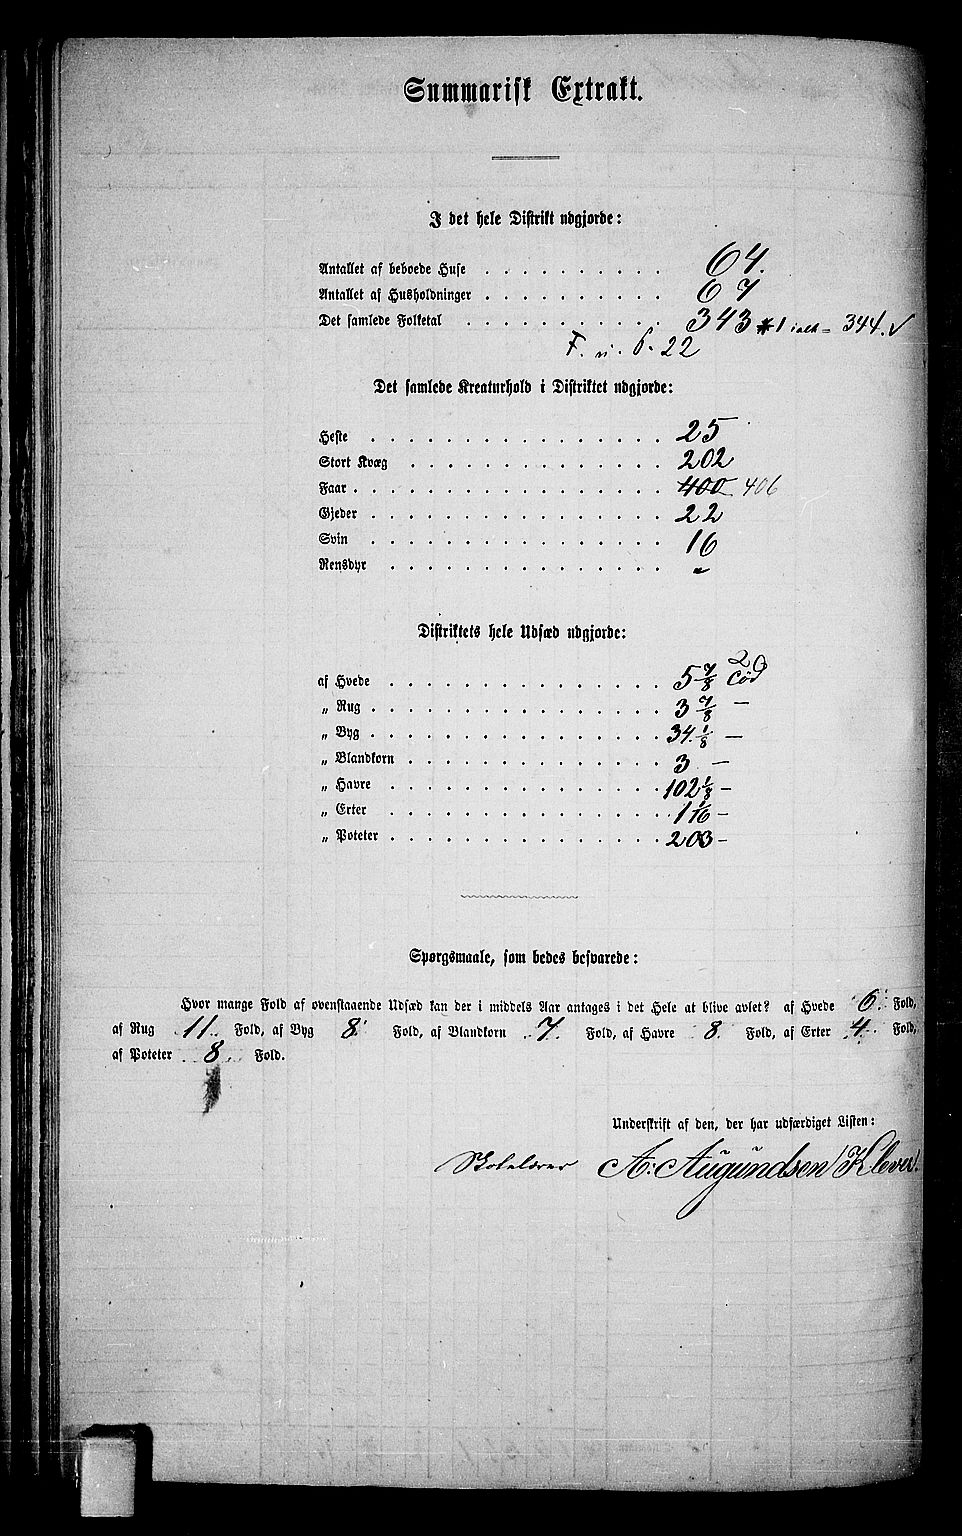 Summarisk Extrakt.
I det hele Distrikt udgjorde:
Antallet af beboede Huse . . . . . . . . . . 64.
Antallet af Husholdninger . . . . . . . . . . 67
Det samlede Folketal . . . . . . . . . . . 343 1 ialt = 344. √
F. 22
Det samlede Kreaturhold i Distriktet udgjorde:
Heste . . . . . . . . . . . . . . . . 25
Stort Kvæg . . . . . . . . . . . . . . 202
Faar . . . . . . . . . . . . . . . . . 400 406
Gjeder . . . . . . . . . . . . . . . . 22
Svin . . . . . . . . . . . . . . . . 16
Rensdyr . . . . . . . . . . . . . . . "
Distriktets hele Udsæd udgjorde:
af Hvede . . . . . . . . . . . . . . . 5 7/8
„ Rug . . . . . . . . . . . . . . . . 3 7/8 —
„ Byg . . . . . . . . . . . . . . . . 34 1/8 —
„ Blandkorn . . . . . . . . . . . . . . 3 —
„ Havre . . . . . . . . . . . . . . . 102 1/8 —
„ Erter . . . . . . . . . . . . . . . 1 1/16 —
„ Poteter . . . . . . . . . . . . . . . 203 —
Spørgsmaale, som bedes besvarede:
Hvor mange Fold af ovenstaaende Udsæd kan der i middels Aar antages i det Hele at blive avlet? af Hvede 6. Fold,
af Rug 11. Fold, af Byg 8 Fold, af Blandkorn 7. Fold, af Havre 8. Fold, af Erter 4. Fold,
af Poteter 8. Fold.
Underskrift af den, der har udfærdiget Listen:
Skolelærer A. Augundsen /Klever/.